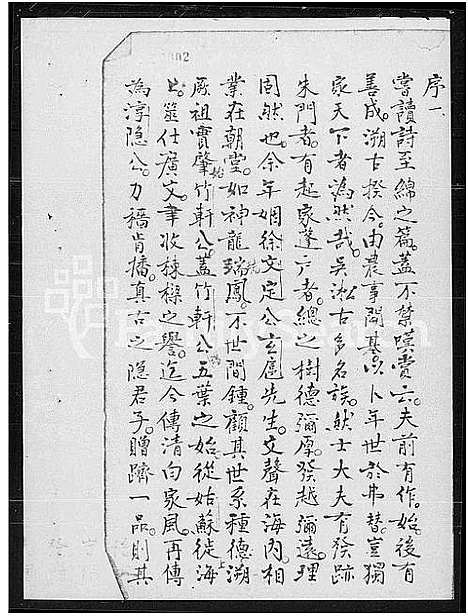 002
序一
嘗讀詩至綿之篇。蓋不禁嘆賞云。夫前有作。始。後有
善成。溯古揆今。由農事開基。以卜年世於弗替。豈獨
家天下者為然哉。吳淞古多名族。然士大夫有發跡
朱門者。有起家蓬戶者。總之樹德彌厚。發越彌遠。理
固然也。余年姻徐文定公玄扈先生。文聲在海內。相
業在朝堂。如神龍瑞鳳。不世間鍾。顧其世系種德溯
厥祖實肇始竹軒公。蓋竹軒公五葉之始。從姑蘇徙海
上。筮仕廣文。聿收棟樑之譽。迄今傳清白家風。再傳
為淳隱公。力穡肯播。真古之隱君子。贈躋一品。則其
FamilySearch